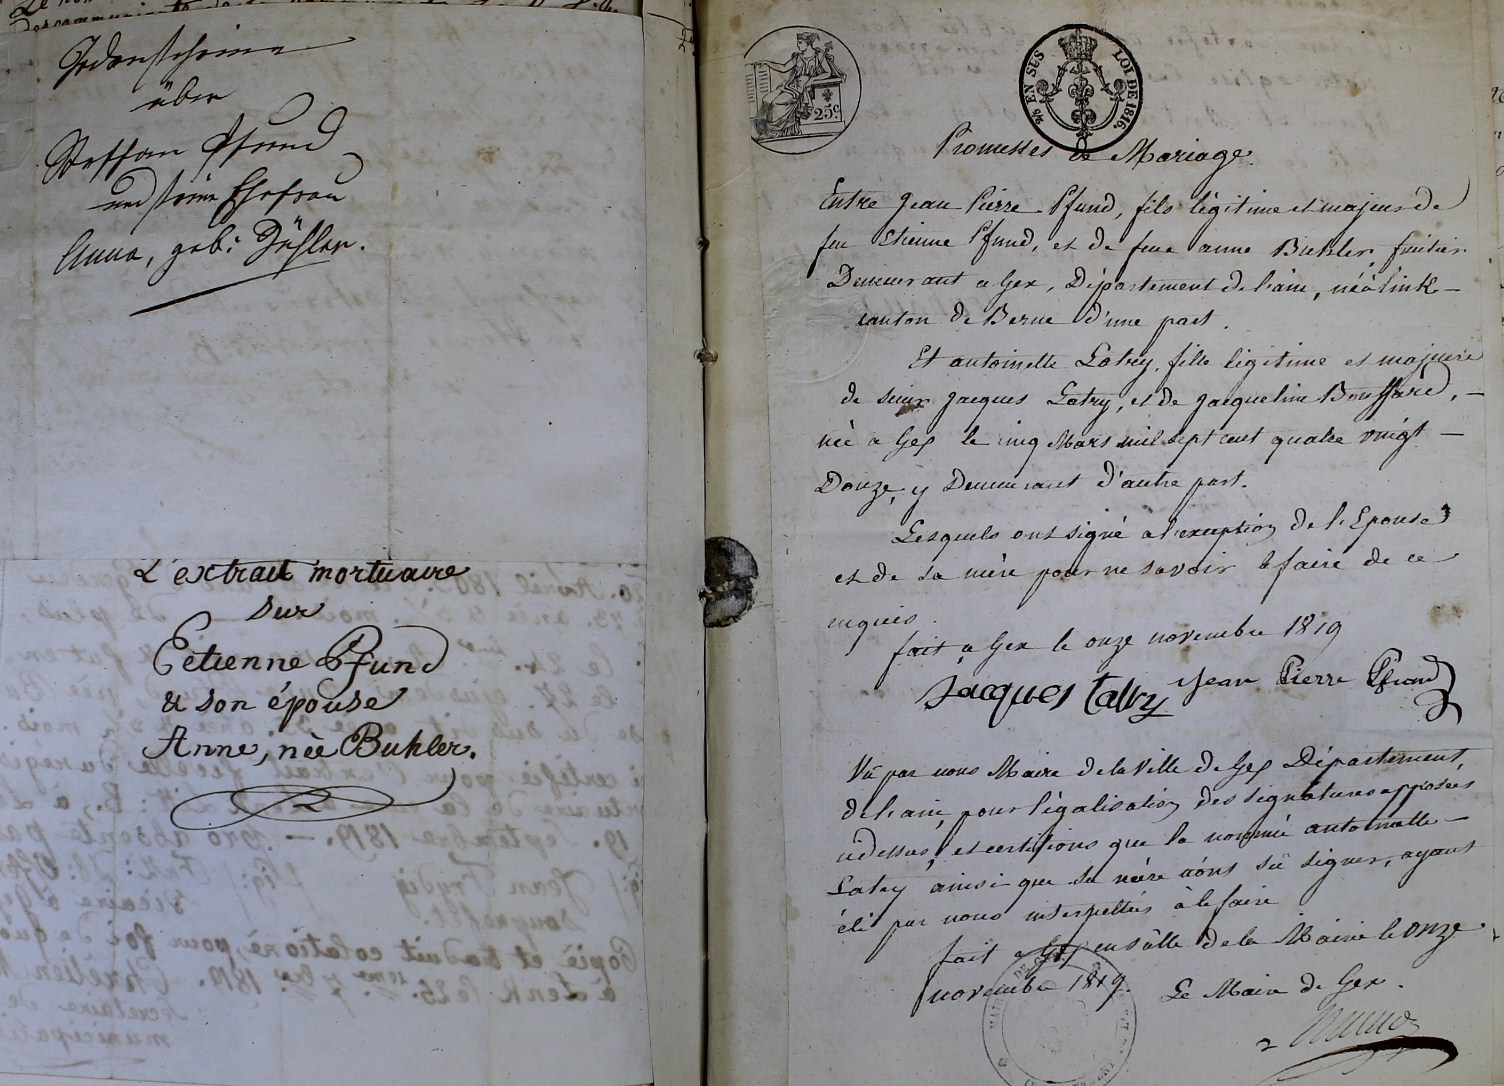 Todenscheine
über
Steffan Pfund
und seine Ehefrau
Anna, geb: Bühler.
L'extrait mortuaire
sur
Etienne Pfund
& son épouse
Anne, née Buhler.
25c
EN SUS LOI DE 1816.
Promesses de Mariage.
Entre Jean Pierre Pfund, fils légitime et majeur de
feu Etienne Pfund, et de feue anne Buhler, fruitier
Demeurant a Gex, Département de l'ain, né à link
canton de Berne d'une part.
Et antoinette Latry, fille légitime et majeure
de sieur Jacques Latry, et de jacqueline Bouffard,
née a Gex le cinq Mars mil sept cent quatre vingt
Douze, y Demeurant d'autre part.
Lesquels ont signé a l'exception de l'Epouse
et de sa mère pour ne savoir le faire de ce
enquis.
fait a Gex le onze novembre 1819
Jacques Latry Jean Pierre Pfund
Vû par nous Maire de la ville de Gex Département,
de l'ain, pour légalisation des signatures apposées
cidessus, et certifions que la nommée antoinette
Latry ainsi que sa mère n'ont sû signer, ayant
été par nous interpellées à le faire
fait a Gex en salle de la Mairie le onze
novembre 1819.
Le Maire de Gex.